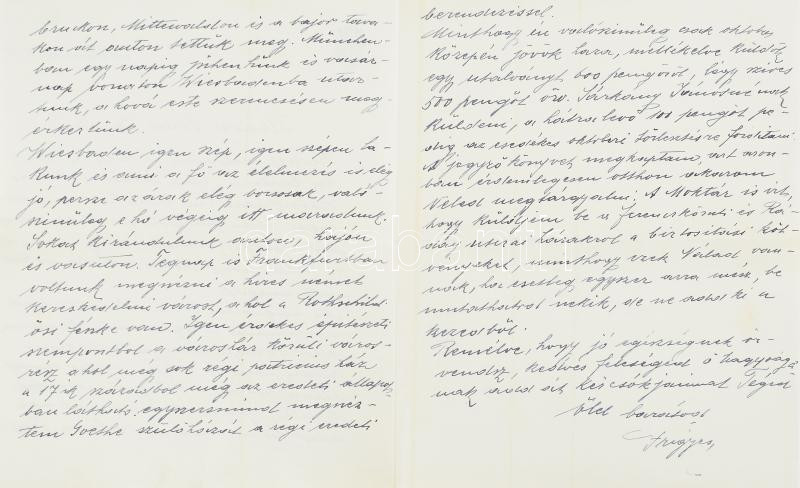 bruckon, Mittenwaldon is a bajor tava-
kon át auton tettük meg. München-
ben egy napig pihentünk és vasár-
nap vonaton Wiesbadenba utaz-
tunk, a hová este szerencsésen meg-
érkeztünk.
Wiesbaden igen szép, igen szépen la-
kunk és ami a fő az élelmezés is elég
jó, persze az árak elég borsosak, való-
szinüleg e hó végéig itt maradunk.
Sokat kirándulunk auton, hajón
és vasuton. Tegnap is Frankfurtban
voltunk megnézni a hires német
kereskedelmi várost, ahol a Rothschild
ősi fészke van. Igen érdekes épitészeti
szempontból a városház körüli város-
rész ahol még sok régi patricius ház
a 17-ik századból még az eredeti állapot-
ban látható, egyszersmind megnéz-
tem Goethe szülőházát a régi eredeti
berendezéssel.
Minthogy én valószinüleg csak október
közepén jövök haza, mellékelve küldök
egy utalványt 600 pengőről, légy szives
500 pengőt özv. Sárkány Jánosné nak
küldeni, a hátralevő 100 pengőt pe-
dig az esedékes októberi törlesztésre forditani.
A jegyzőkönyvet megkaptam, azt azon-
ban érdemlegesen otthon akarom
Veled megtárgyalni. A Moktár is irt,
hogy küldjem be a ferencköruti és Rá-
day utcai házakról a biztositási köt-
vényeket, minthogy ezek Nálad van-
nak, ha esetleg egyszer arra mész, be
mutathatod nekik, de ne add ki a
kezedből.
Remélve, hogy jó egészségnek ör-
vendsz, kedves feleséged ő nagysága
nak add át kézcsókjaimat Téged
ölel barátod
Frigyes,